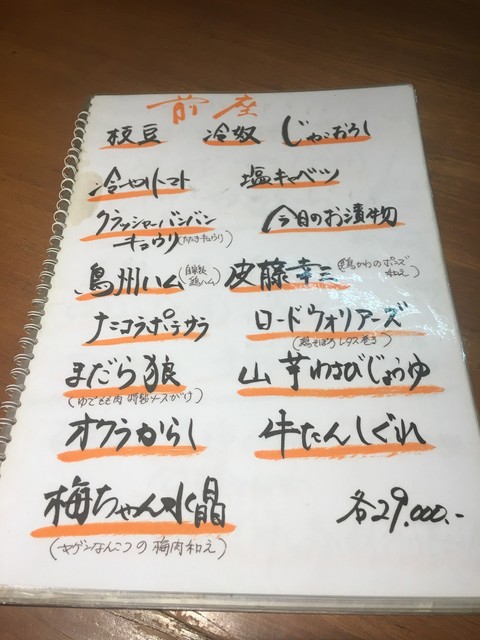 前座
枝豆 冷奴 じゃこおろし
冷やしトマト 塩キャベツ
クラッシャーバンバン 今日のお漬物
キュウリ(たたきキュウリ)
鳥州ハム(自家製 鶏ハム) 皮藤幸三(鶏かわのポン酢 和え)
ナニコラポテサラ ロードウォリアーズ
(鶏そぼろレタス巻き)
まだら狼 山芋わさびじょうゆ
(ゆでもも肉 特製ソースがけ)
オクラからし 牛たんしぐれ
梅ちゃん水晶 各29,000.-
(ヤゲンなんこつの梅肉和え)